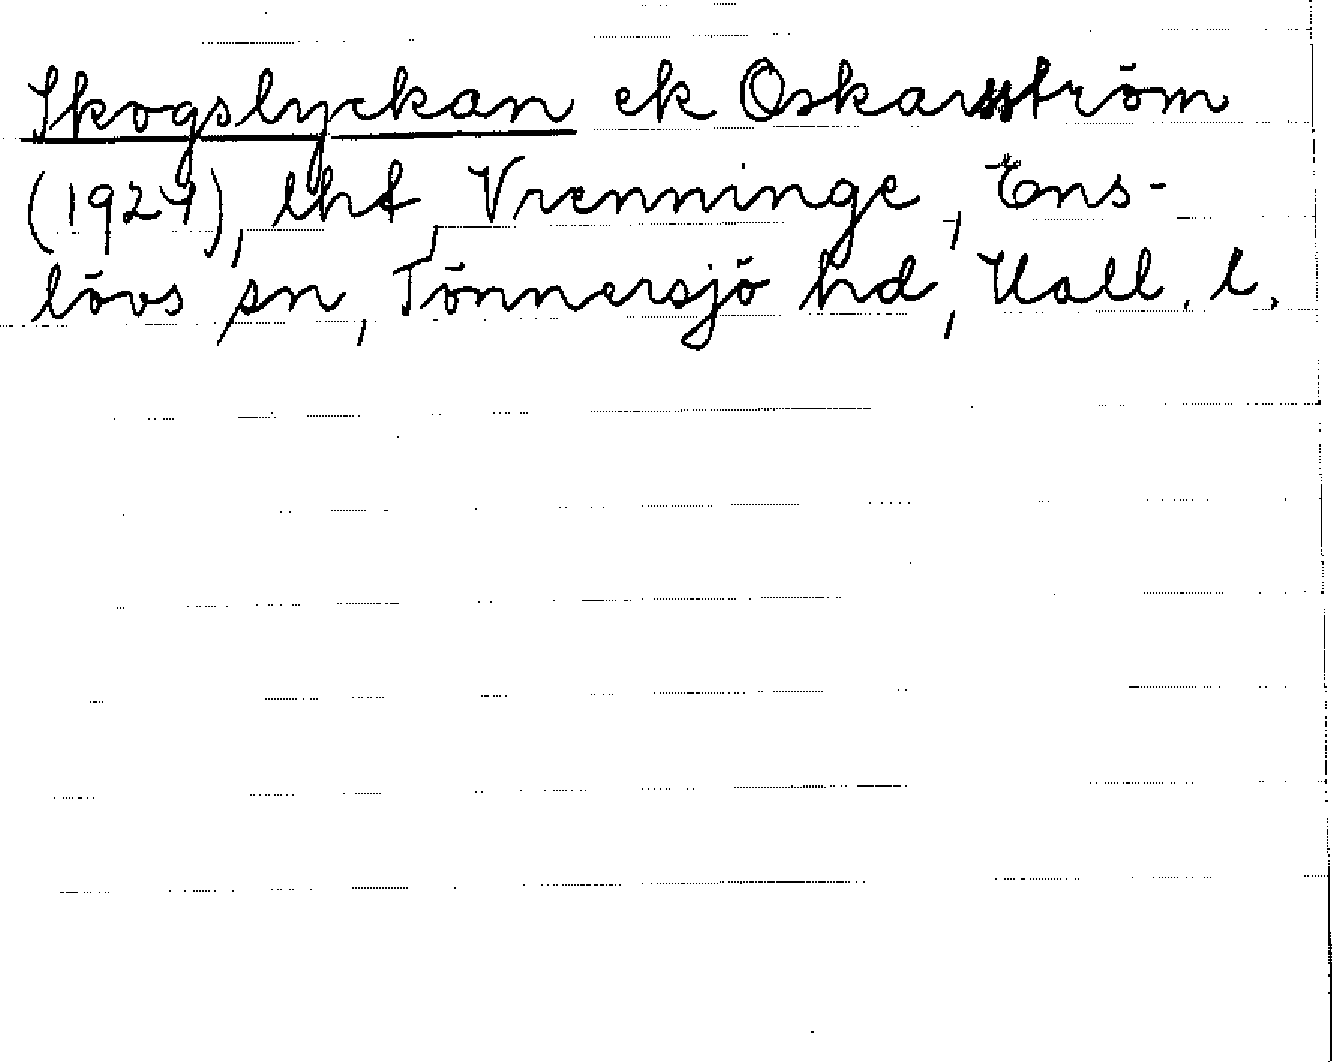 Skogslyckan ek Oskarström
(1924), lht, Vrenninge, Ens-
lövs sn, Tönnersjö hd, Hall. l.